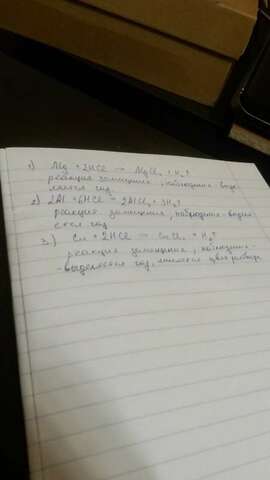 1) Mg + 2HCl → MgCl₂ + H₂↑
реакция замещения, наблюдения - выде-
лился газ.
2) 2Al + 6HCl = 2AlCl₃ + 3H₂↑
реакция замещения, наблюдения - выдели-
лся газ
3) Cu + 2HCl → CuCl₂ + H₂↑
реакция замещения, наблюдения -
- выделился газ, цвет